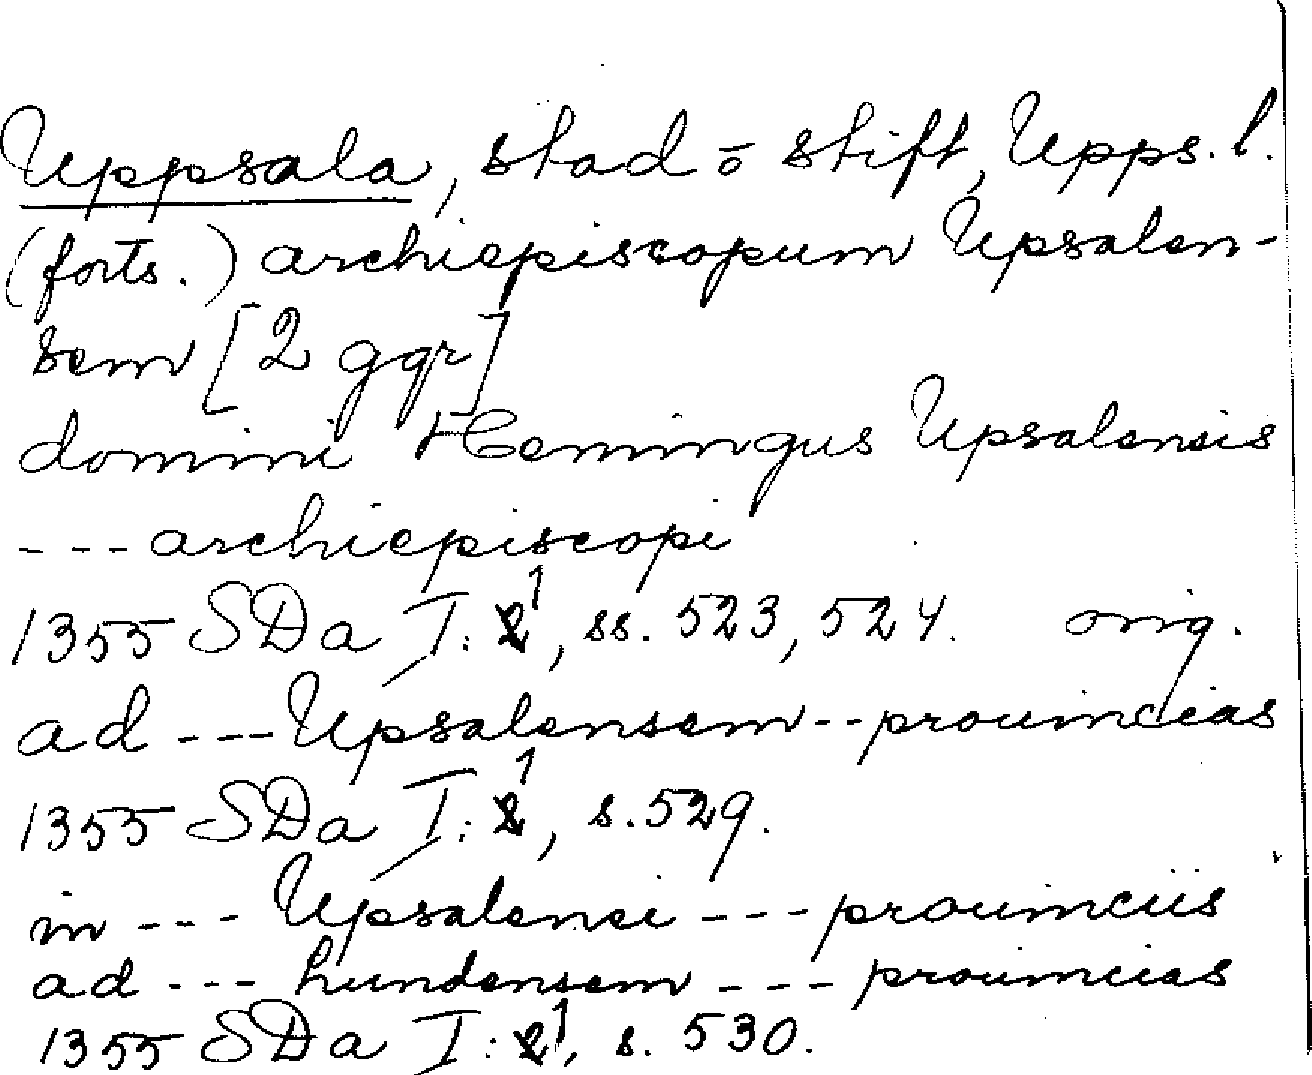 Uppsala, stad o stift, Upps. l.
(forts.) archiepiscopum Upsalen-
sem [2 ggr]
domini Hemingus Upsalensis
--- archiepiscopi
1355 SDa I: 1, ss. 523, 524. orig.
ad --- Upsalensem -- prouincias
1355 SDa I: 1, s. 529.
in --- Upsalensi --- prouinciis
ad --- hundensem --- prouincias
1355 SDa I: 1, s. 530.